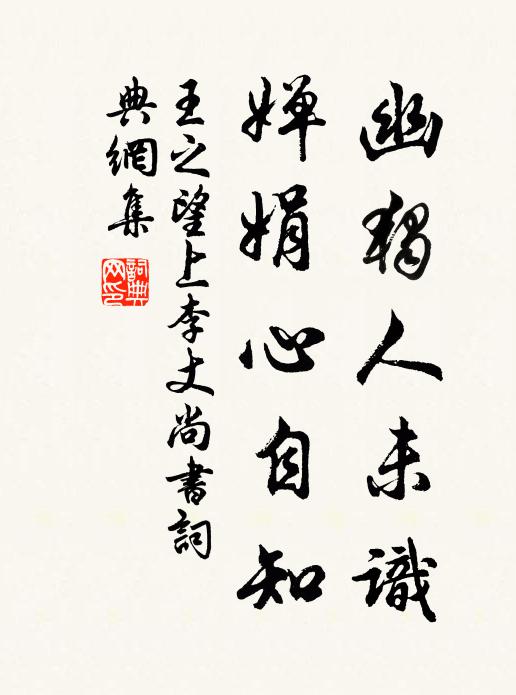 幽獨人未識
嬋娟心自知
王之望上李丈尚書詞
典網集
詞典
网印